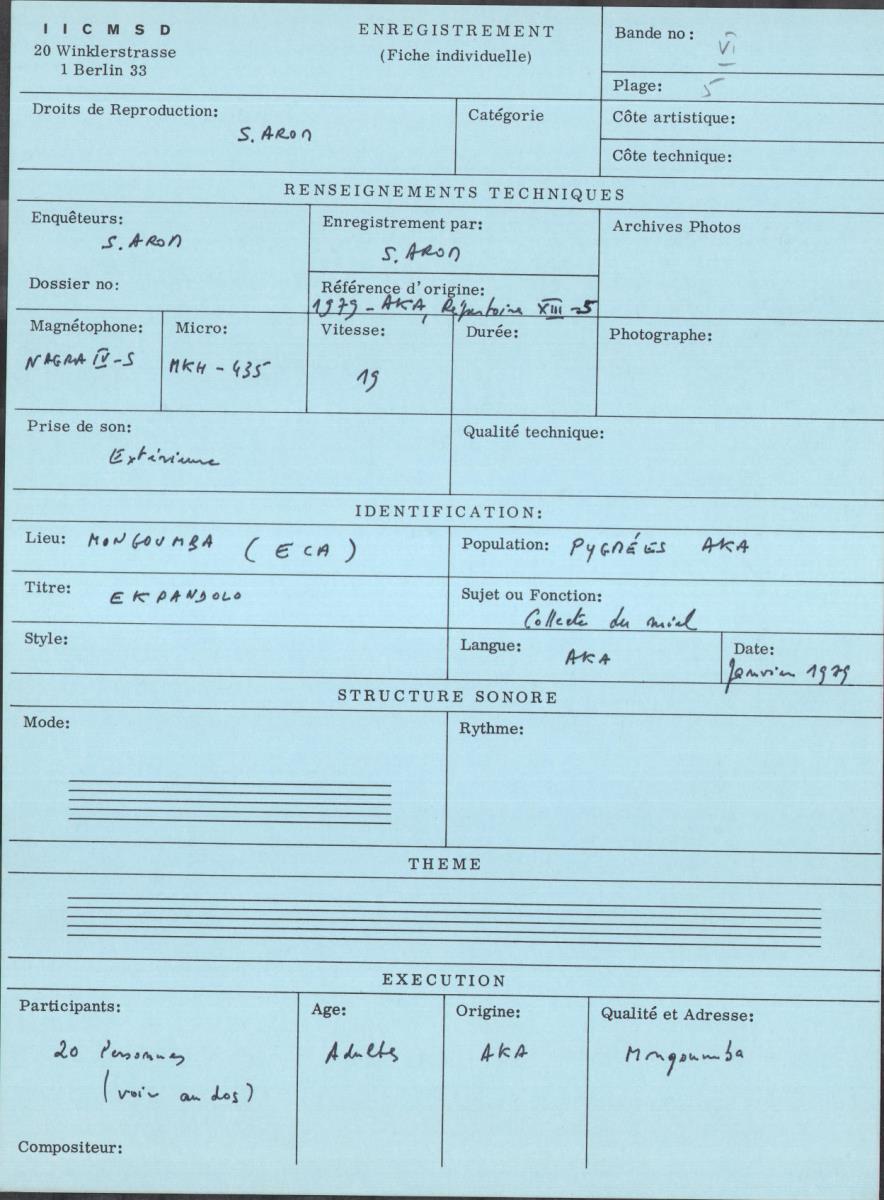 I I C M S D
20 Winklerstrasse
1 Berlin 33
ENREGISTREMENT
(Fiche individuelle)
Bande no: VI
Plage: 5
Droits de Reproduction:
S. AROM
Catégorie
Côte artistique:
Côte technique:
RENSEIGNEMENTS TECHNIQUES
Enquêteurs:
S. AROM
Dossier no:
Enregistrement par:
S. AROM
Référence d'origine:
1979 - AKA, Répertoire XIII-5
Archives Photos
Magnétophone:
NAGRA IV-S
Micro:
MKH - 435
Vitesse:
19
Durée:
Photographe:
Prise de son:
Extérieure
Qualité technique:
IDENTIFICATION:
Lieu: MONGOUMBA (ECA)
Population: PYGMÉES AKA
Titre: EKPANDOLO
Sujet ou Fonction:
Collecte du miel
Style:
Langue:
AKA
Date:
Janvier 1979
STRUCTURE SONORE
Mode:
Rythme:
THEME
EXECUTION
Participants:
20 Personnes
(voir au dos)
Age:
Adultes
Origine:
AKA
Qualité et Adresse:
Mongoumba
Compositeur: